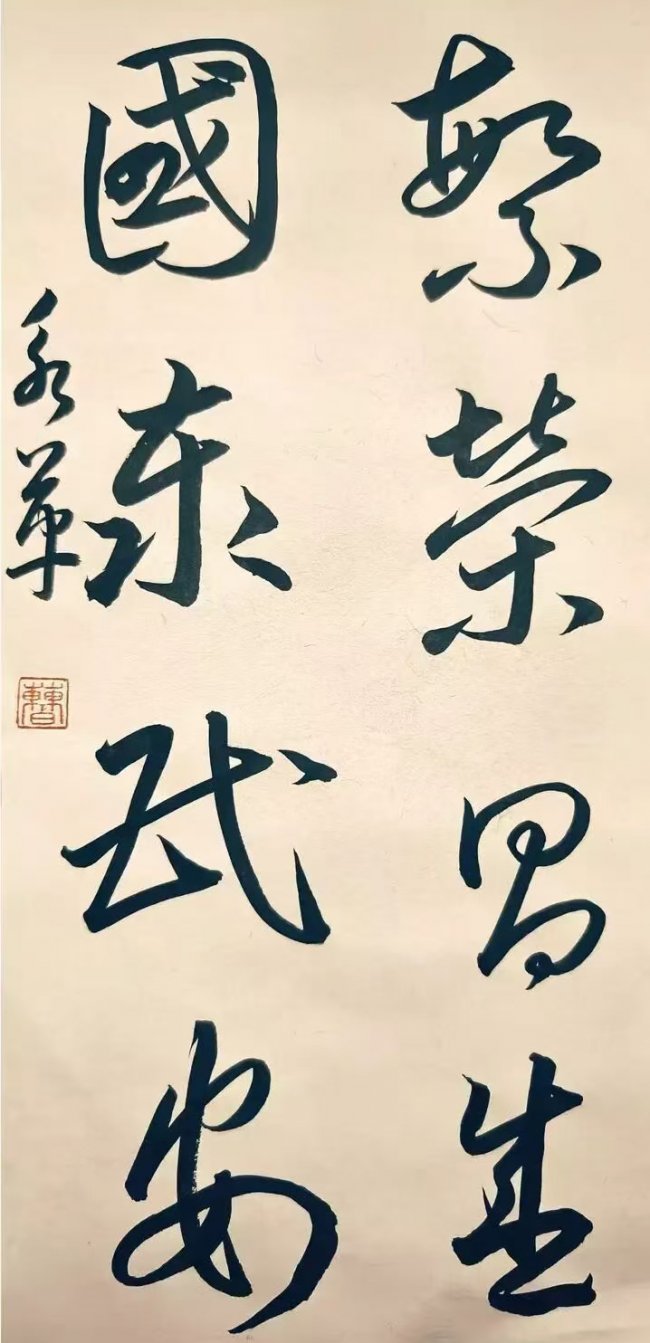 繁榮昌盛
國泰民安
永
曹